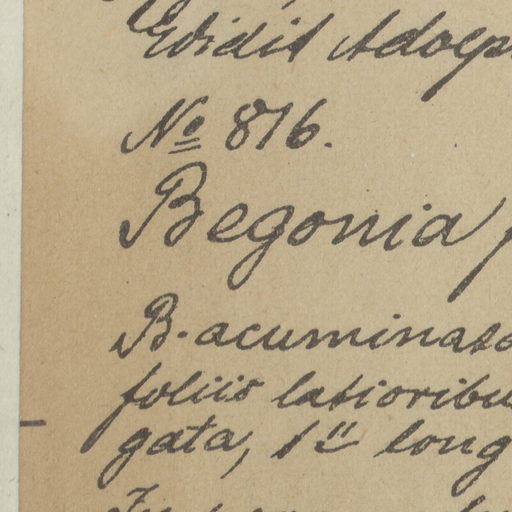 Edidit Adolp
No 876.
Begonia
B. acuminata
foliis latioribu
gata, 1" long